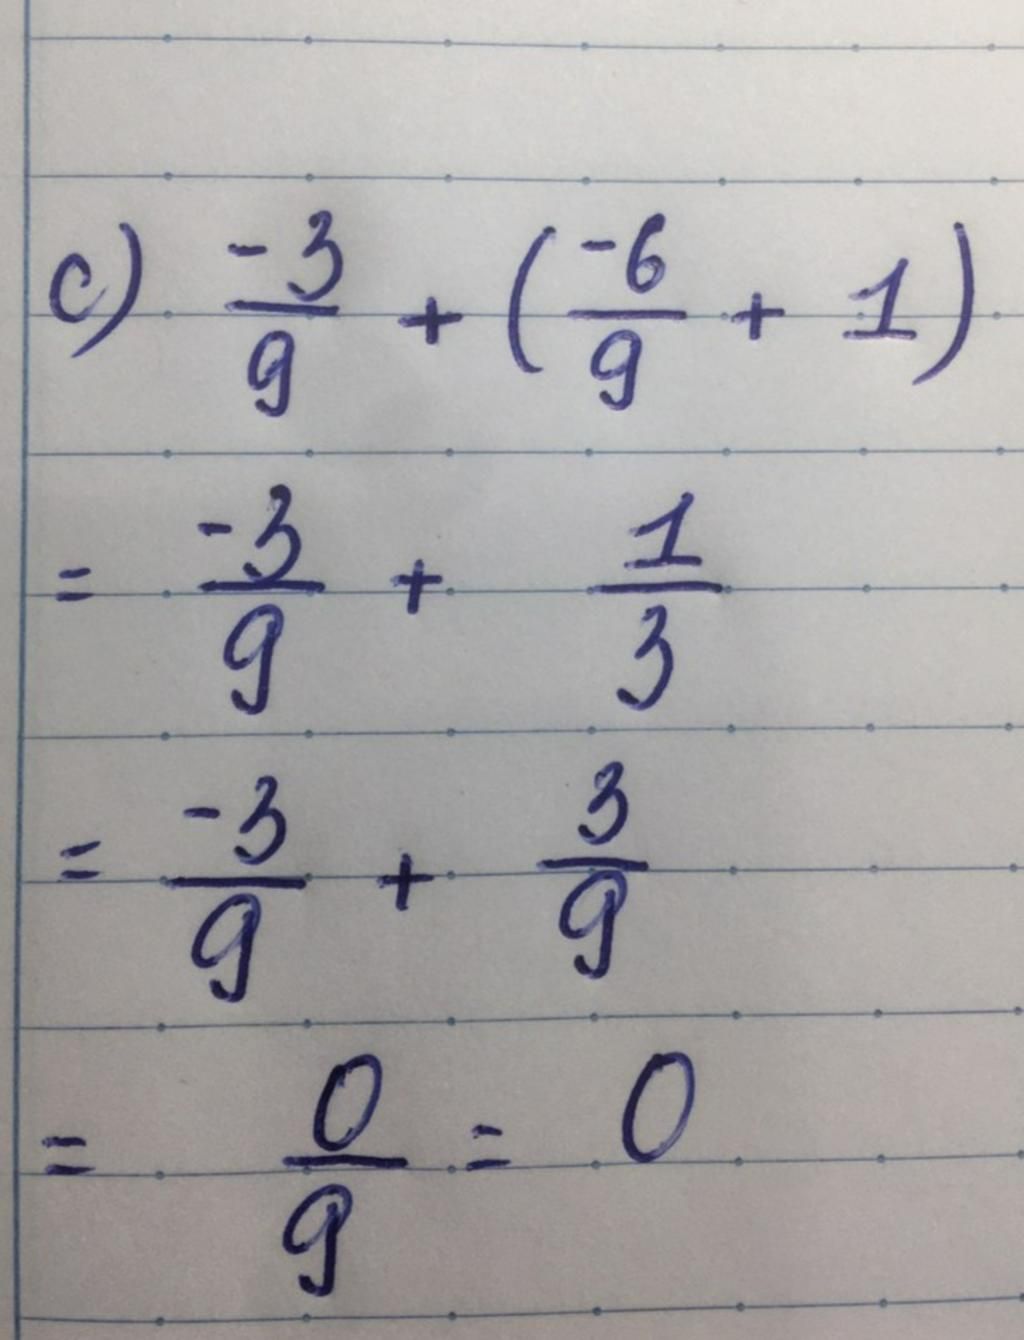 c) -3/9 + (-6/9 + 1)
= -3/9 + 1/3
= -3/9 + 3/9
= 0/9 = 0